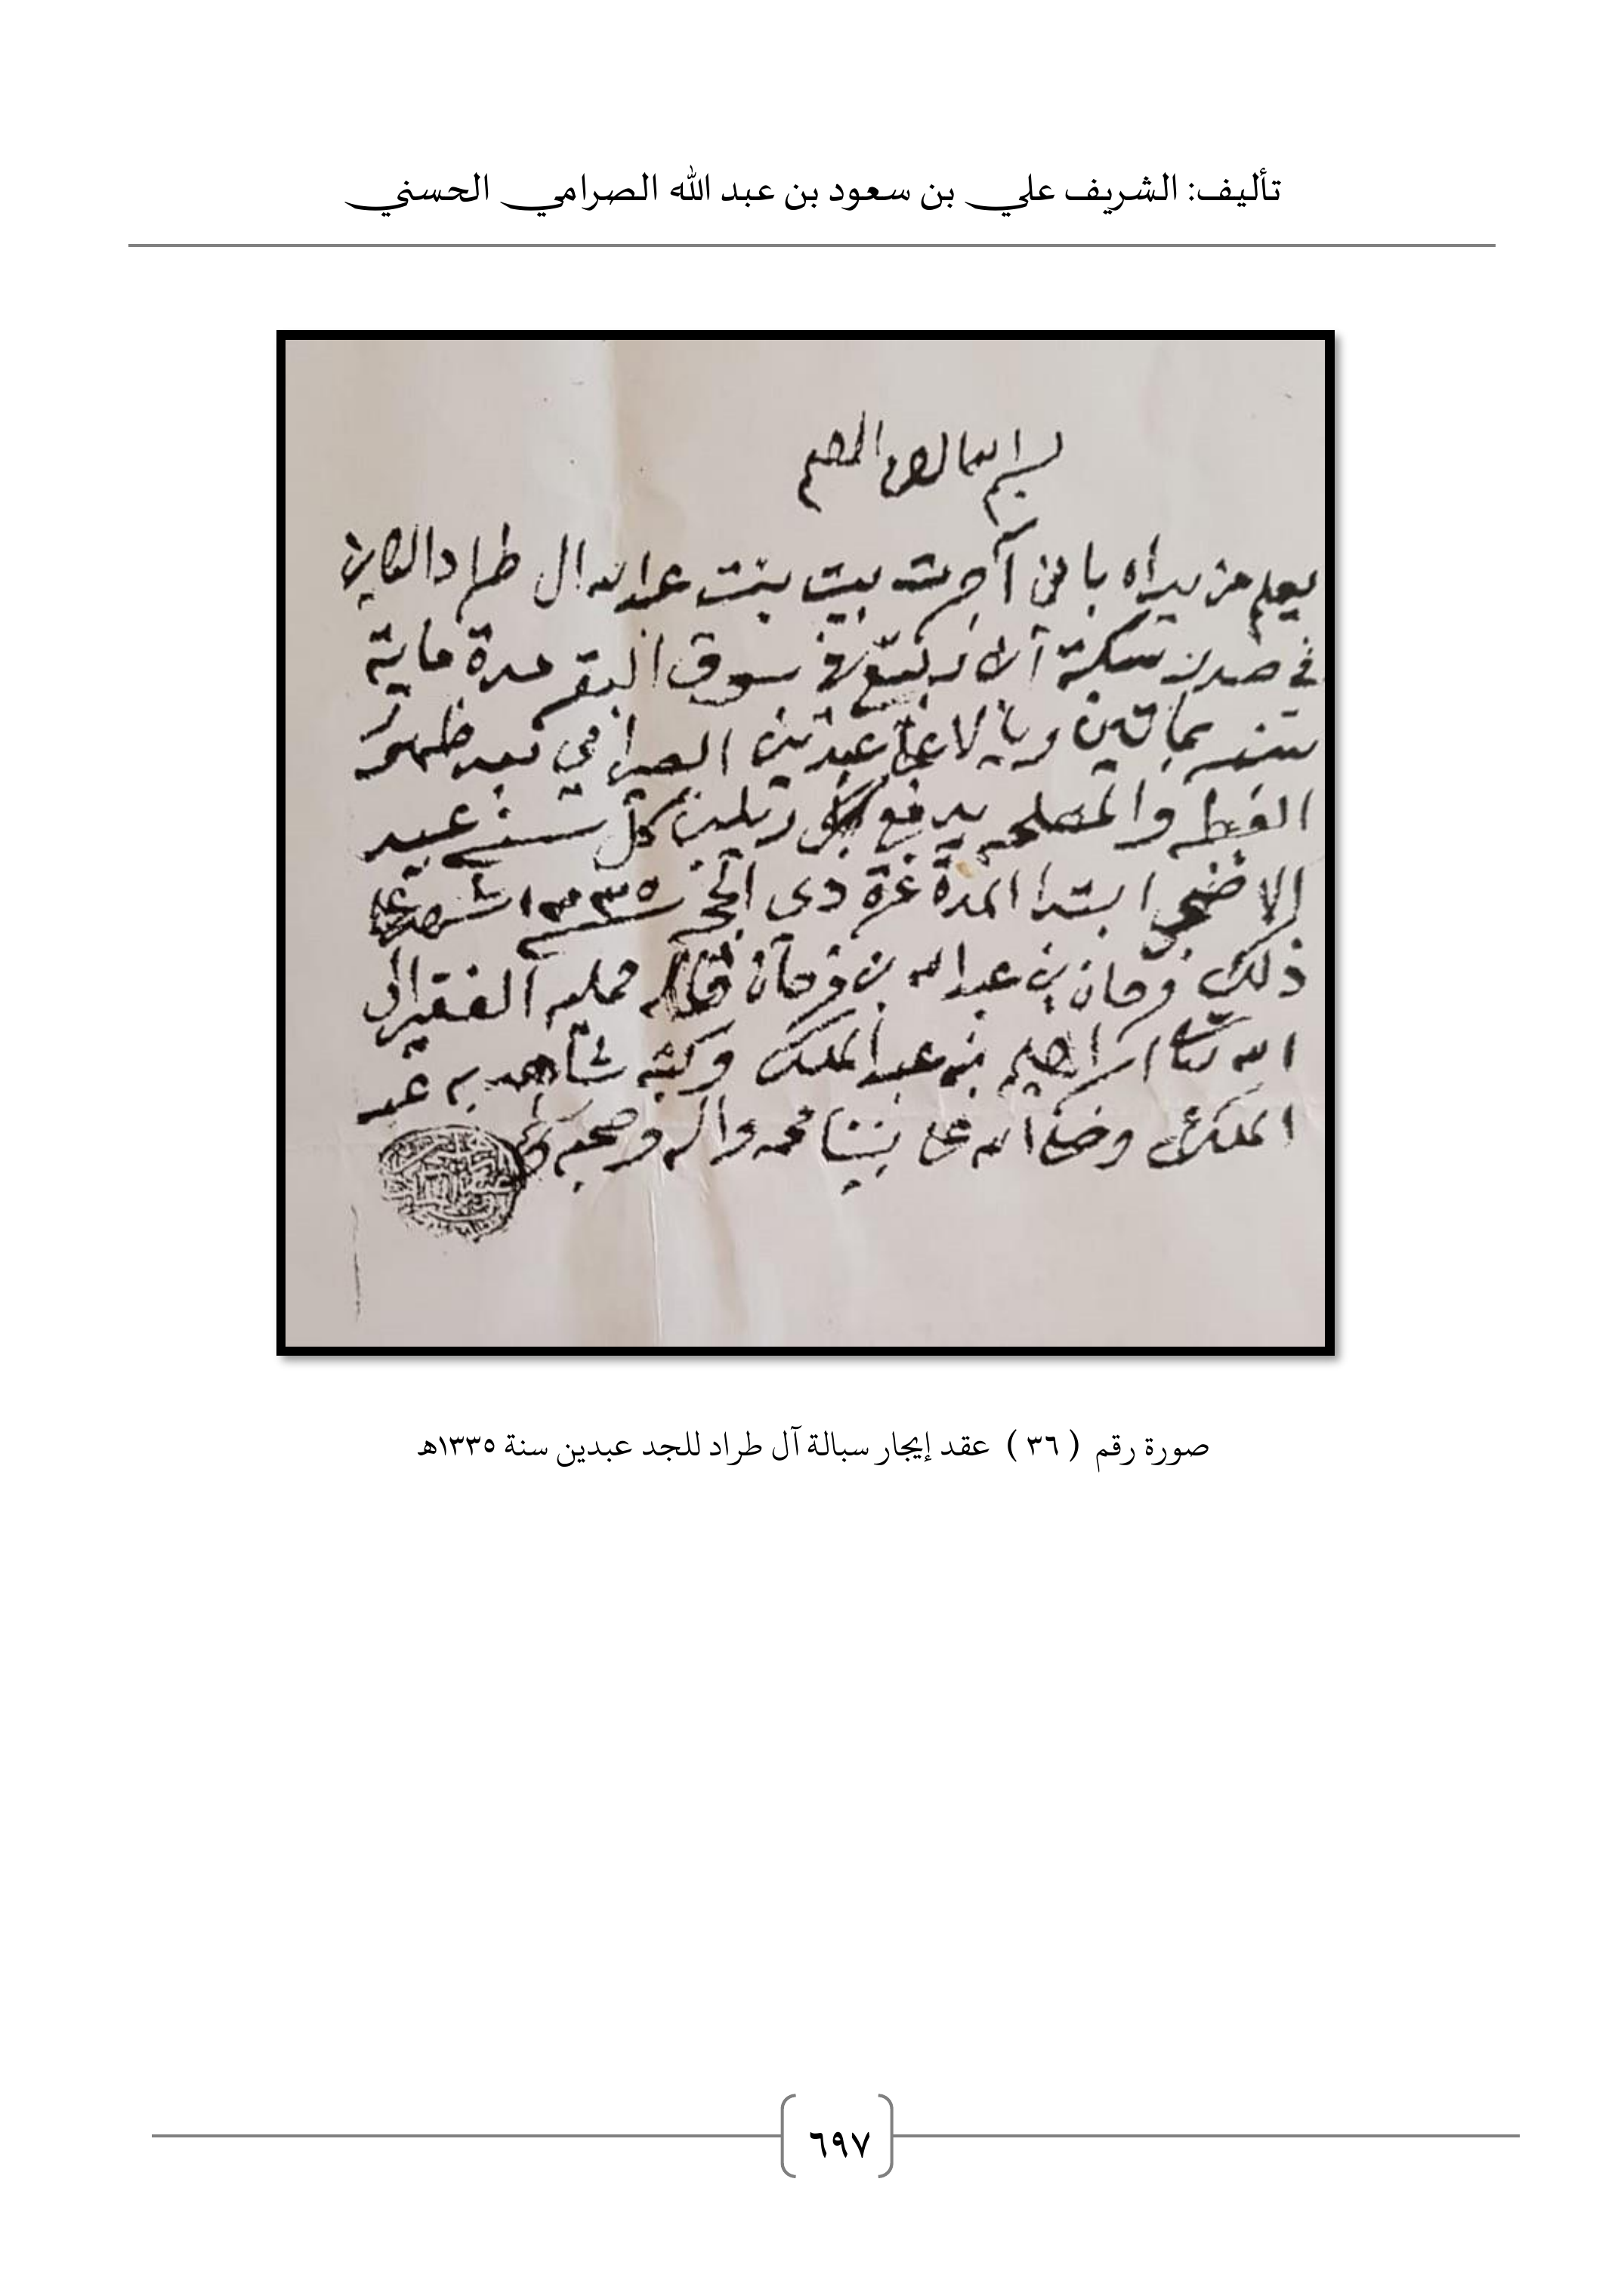 تأليف: الشريف علي بن سعود بن عبد الله الصرامي الحسني
بسم الله الرحمن الرحيم
يعلم من يراه باني آجرت بيت بنت عبدالله ال طراد الكاين
في سكة في سوق البقر مدة ماية
سنه ريال على عبدين الصرامي بعد ظهور
الغبطه والمصلحه يدفع ريلين كل سنة عيد
الاضحى ابتدا المدة غرة ذى الحجة ١٣٣٥ شهد على
ذلك فرحان بن عبدالله بن فرحان قاله ممليه الفقير الى
الله تعالى ابراهيم بن عبدالملك وكتبه شاهد به عبد
الملك وصلى الله على نبينا محمد واله وصحبه
صورة رقم ( ٣٦ ) عقد إيجار سبالة آل طراد للجد عبدين سنة ١٣٣٥هـ
٦٩٧